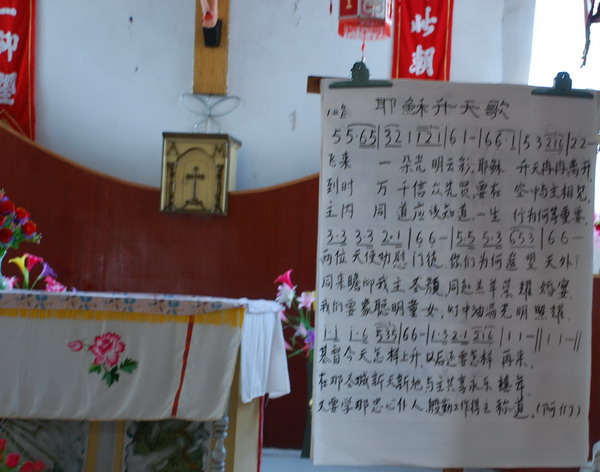 耶稣升天歌
5 5·65|32 1 121|6 1-|6 6·1|5 3 216|2 2-
飞来 一朵光明云彩,耶稣 升天冉冉离开,
到时 万千信众先贤,要在 空中与主相见,
主内 同道应该知道,一生 行为何等重要,
3·3 3·3 2·1|6 6-|5·5 5·3 653|6 6-
两位天使劝慰门徒,你们为何遥望天外!
同来瞻仰我主圣颜,同赴羔羊荣耀婚宴,
我们要象聪明童女,灯中油满光明照耀.
1·1 1·6 535|6 6-|1·3 2·1 216|1 1-‖1 1-‖
基督今天怎样上升,以后还要怎样再来.
在耶京城新天新地与主共享永乐
又要学那忠心仆人,殷勤工作得主称道.